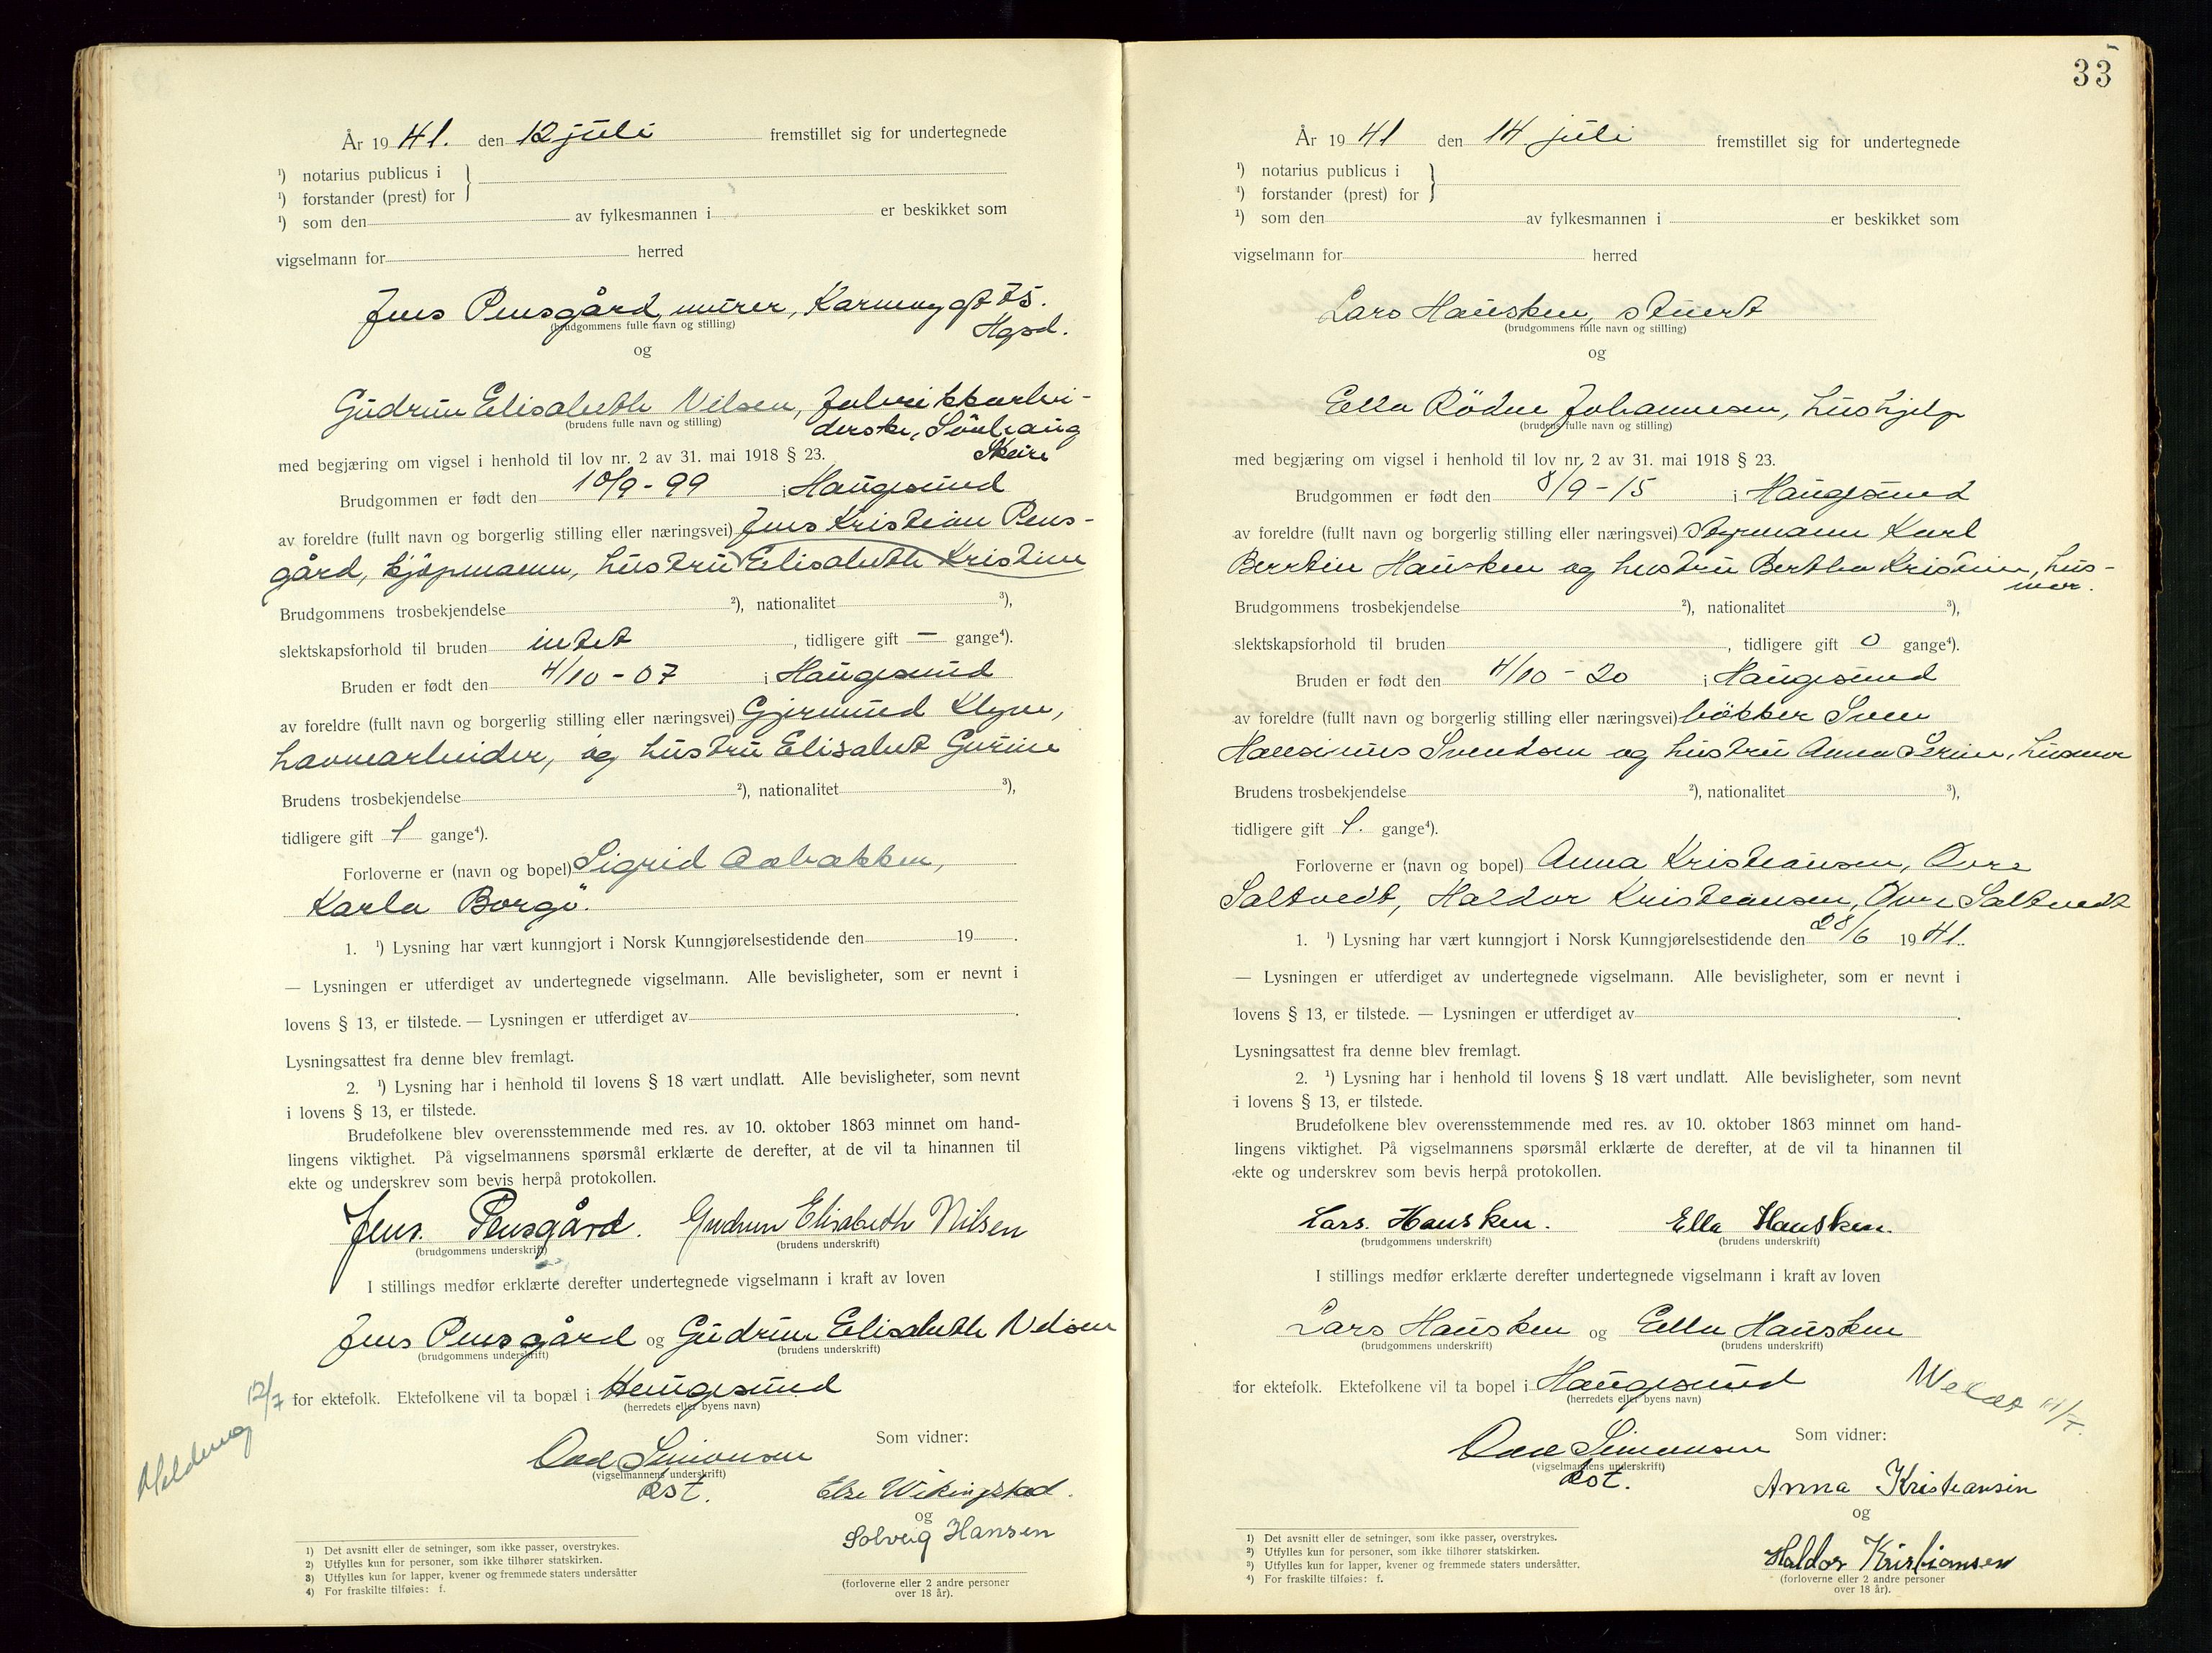 År 19 41. den 12 juli fremstillet sig for undertegnede
¹) notarius publicus i
¹) forstander (prest) for
¹) som den av fylkesmannen i er beskikket som
vigselmann for herred
Jens Pensgård, murer, Karmøygt 75.
(brudgommens fulle navn og stilling)
Hgsd.
og
Gudrun Elisabeth Nilsen, fabrikkarbei-
(brudens fulle navn og stilling)
derske, Sörhaug
Skeire
med begjæring om vigsel i henhold til lov nr. 2 av 31. mai 1918 § 23.
Brudgommen er født den 10/9 - 99 i Haugesund
av foreldre (fullt navn og borgerlig stilling eller næringsvei) Jens Kristian Pens-
gård, kjöpmann, hustru Elisabeth Kristine
Brudgommens trosbekjendelse ²), nationalitet ³),
slektskapsforhold til bruden intet, tidligere gift — gange⁴).
Bruden er født den 4/10 - 07 i Haugesund
av foreldre (fullt navn og borgerlig stilling eller næringsvei) Gjermund Klyve,
havnearbeider, og hustru Elisabet Gurine
Brudens trosbekjendelse ²), nationalitet ³),
tidligere gift 1 gange⁴).
Forloverne er (navn og bopel) Sigrid Aabakken,
Karla Borgö.
1. ¹) Lysning har vært kunngjort i Norsk Kunngjørelsestidende den 19 .
— Lysningen er utferdiget av undertegnede vigselmann. Alle bevisligheter, som er nevnt i
lovens § 13, er tilstede. — Lysningen er utferdiget av .
Lysningsattest fra denne blev fremlagt.
2. ¹) Lysning har i henhold til lovens § 18 vært undlatt. Alle bevisligheter, som nevnt
i lovens § 13, er tilstede.
Brudefolkene blev overensstemmende med res. av 10. oktober 1863 minnet om hand-
lingens viktighet. På vigselmannens spørsmål erklærte de derefter, at de vil ta hinannen til
ekte og underskrev som bevis herpå protokollen.
Jens. Pensgård. Gudrun Elisabeth Nilsen
(brudgommens underskrift) (brudens underskrift)
I stillings medfør erklærte derefter undertegnede vigselmann i kraft av loven
Jens Pensgård og Gudrun Elisabeth Nilsen
(brudgommens underskrift) (brudens underskrift)
for ektefolk. Ektefolkene vil ta bopæl i Haugesund
(herredets eller byens navn)
Melding 12/7
Som vidner:
Simonsen
(vigselmannens underskrift)
kst.
Else Wikingstad.
og
Solveig Hansen
(forloverne eller 2 andre personer
over 18 år).
1) Det avsnitt eller de setninger, som ikke passer, overstrykes.
2) Utfylles kun for personer, som ikke tilhører statskirken.
3) Utfylles kun for lapper, kvener og fremmede staters undersåtter
4) For fraskilte tilføies: f.
33
År 19 41 den 14 juli fremstillet sig for undertegnede
¹) notarius publicus i
¹) forstander (prest) for
¹) som den av fylkesmannen i er beskikket som
vigselmann for herred
Lars Hausken, stuert
(brudgommens fulle navn og stilling)
og
Ella Rödne Johannesen, hushjelp
(brudens fulle navn og stilling)
med begjæring om vigsel i henhold til lov nr. 2 av 31. mai 1918 § 23.
Brudgommen er født den 8/9 - 15 i Haugesund
av foreldre (fullt navn og borgerlig stilling eller næringsvei) styrmann Karl
Berntin Hausken og hustru Bertha Kristine, hus-
mor.
Brudgommens trosbekjendelse ²), nationalitet ³),
slektskapsforhold til bruden , tidligere gift 0 gange⁴).
Bruden er født den 4/10 - 20 i Haugesund
av foreldre (fullt navn og borgerlig stilling eller næringsvei) bökker Sven
Svendsen og hustru Anna Serine, husmor
Brudens trosbekjendelse ²), nationalitet ³),
tidligere gift 1. gange⁴).
Forloverne er (navn og bopel) Anna Kristiansen, Övre
Saltvedt, Haldor Kristiansen, Övre Saltvedt
1. ¹) Lysning har vært kunngjort i Norsk Kunngjørelsestidende den 28/6 19 41.
— Lysningen er utferdiget av undertegnede vigselmann. Alle bevisligheter, som er nevnt i
lovens § 13, er tilstede. — Lysningen er utferdiget av .
Lysningsattest fra denne blev fremlagt.
2. ¹) Lysning har i henhold til lovens § 18 vært undlatt. Alle bevisligheter, som nevnt
i lovens § 13, er tilstede.
Brudefolkene blev overensstemmende med res. av 10. oktober 1863 minnet om hand-
lingens viktighet. På vigselmannens spørsmål erklærte de derefter, at de vil ta hinannen til
ekte og underskrev som bevis herpå protokollen.
Lars. Hausken. Ella Hausken.
(brudgommens underskrift) (brudens underskrift)
I stillings medfør erklærte derefter undertegnede vigselmann i kraft av loven
Lars Hausken og Ella Hausken
(brudgommens underskrift) (brudens underskrift)
for ektefolk. Ektefolkene vil ta bopel i Haugesund
(herredets eller byens navn)
Meldt 14/7.
Som vidner:
Simonsen
(vigselmannens underskrift)
kst.
Anna Kristiansen
og
Haldor Kristiansen
(forloverne eller 2 andre personer
over 18 år).
¹) Det avsnitt eller de setninger, som ikke passer, overstrykes.
²) Utfylles kun for personer, som ikke tilhører statskirken.
³) Utfylles kun for lapper, kvener og fremmede staters undersåtter.
⁴) For fraskilte tilføies: f.